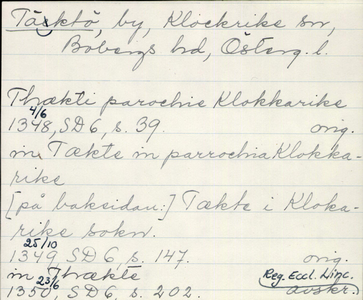 Täcktö, by, Klockrike sn,
Bobergs hd, Österg. l.
Thækti parochie Klokkarike
1348 4/6, SD 6, s. 39. orig.
in Tækte in parrochia Klokka-
rike
[på baksidan:] Tækte i Kloka-
rike sokn.
1349 25/10, SD 6, s. 147. orig.
in Thrækte Reg. Eccl. Linc.
1350 23/6, SD 6, s. 202. avskr.